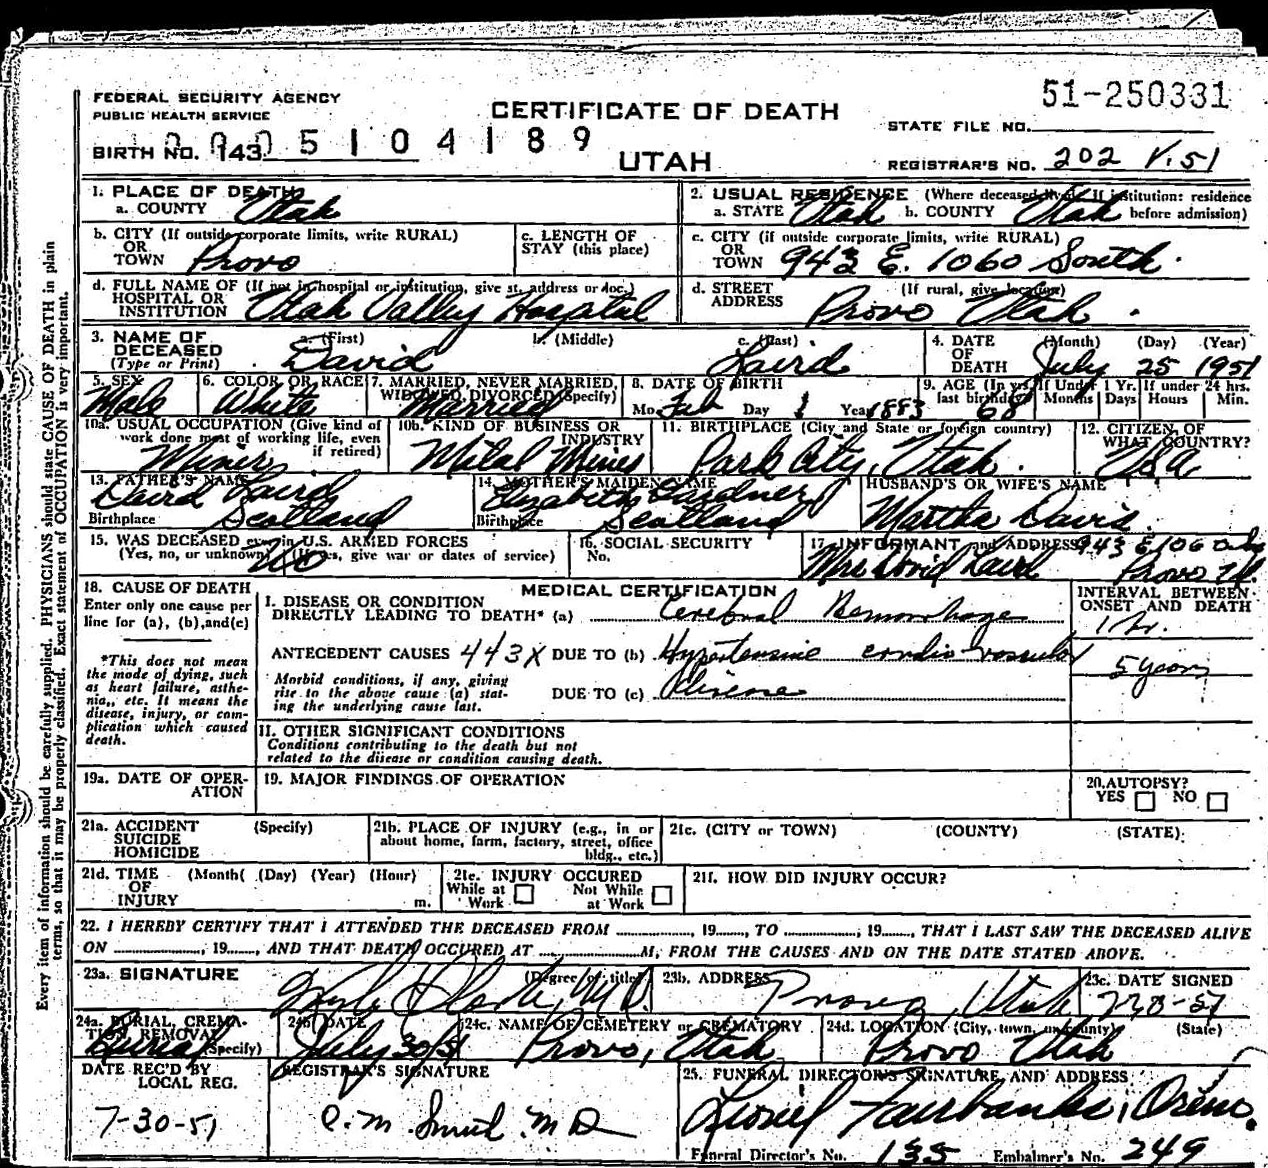 51-250331
FEDERAL SECURITY AGENCY
PUBLIC HEALTH SERVICE
CERTIFICATE OF DEATH
STATE FILE NO.
BIRTH NO. 143 0005104189
UTAH
REGISTRAR'S NO. 202 V.51
Every item of information should be carefully supplied. PHYSICIANS should state CAUSE OF DEATH in plain
terms, so that it may be properly classified. Exact statement of OCCUPATION is very important.
1. PLACE OF DEATH
a. COUNTY Utah
2. USUAL RESIDENCE (Where deceased lived. If institution: residence
a. STATE Utah b. COUNTY Utah before admission)
b. CITY (If outside corporate limits, write RURAL)
OR
TOWN Provo
c. LENGTH OF
STAY (this place)
c. CITY (if outside corporate limits, write RURAL)
OR
TOWN 943 E. 1060 South
d. FULL NAME OF (If not in hospital or institution, give st. address or loc.)
HOSPITAL OR
INSTITUTION Utah Valley Hospital
d. STREET (If rural, give location)
ADDRESS Provo Utah.
3. NAME OF a. (First) b. (Middle) c. (Last)
DECEASED David Laird
(Type or Print)
4. DATE (Month) (Day) (Year)
OF
DEATH July 25 1951
5. SEX
Male
6. COLOR OR RACE
White
7. MARRIED, NEVER MARRIED,
WIDOWED, DIVORCED (Specify)
Married
8. DATE OF BIRTH
Mo. Feb Day 1 Year 1883
9. AGE (In yrs. If Under 1 Yr. If under 24 hrs.
last birthday) 68 Months Days Hours Min.
10a. USUAL OCCUPATION (Give kind of
work done most of working life, even
if retired)
Miner
10b. KIND OF BUSINESS OR
INDUSTRY
Metal Mines
11. BIRTHPLACE (City and State or foreign country)
Park City, Utah.
12. CITIZEN OF
WHAT COUNTRY?
USA
13. FATHER'S NAME
David Laird
Birthplace Scotland
14. MOTHER'S MAIDEN NAME
Elizabeth Gardner
Birthplace Scotland
HUSBAND'S OR WIFE'S NAME
Martha Davis.
15. WAS DECEASED ever in U.S. ARMED FORCES
(Yes, no, or unknown) (If yes, give war or dates of service)
No
16. SOCIAL SECURITY
No.
17. INFORMANT and ADDRESS 943 E 1060 So
Mrs David Laird Provo Ut.
18. CAUSE OF DEATH
Enter only one cause per
line for (a), (b), and (c)
*This does not mean
the mode of dying, such
as heart failure, asthe-
nia,, etc. It means the
disease, injury, or com-
plication which caused
death.
MEDICAL CERTIFICATION
I. DISEASE OR CONDITION
DIRECTLY LEADING TO DEATH* (a) Cerebral Hemorrhage
ANTECEDENT CAUSES 443X DUE TO (b) Hypertensive cardio-vascular
Morbid conditions, if any, giving
rise to the above cause (a) stat-
ing the underlying cause last.
DUE TO (c) disease
INTERVAL BETWEEN
ONSET AND DEATH
1 hr.
5 years
II. OTHER SIGNIFICANT CONDITIONS
Conditions contributing to the death but not
related to the disease or condition causing death.
19a. DATE OF OPER-
ATION
19. MAJOR FINDINGS OF OPERATION
20. AUTOPSY?
YES NO
21a. ACCIDENT (Specify)
SUICIDE
HOMICIDE
21b. PLACE OF INJURY (e.g., in or
about home, farm, factory, street, office
bldg., etc.)
21c. (CITY or TOWN) (COUNTY) (STATE)
21d. TIME (Month( (Day) (Year) (Hour)
OF
INJURY m.
21e. INJURY OCCURED
While at Work Not While at Work
21f. HOW DID INJURY OCCUR?
22. I HEREBY CERTIFY THAT I ATTENDED THE DECEASED FROM ............, 19....., TO ............, 19....., THAT I LAST SAW THE DECEASED ALIVE
ON ............, 19....., AND THAT DEATH OCCURED AT ............M, FROM THE CAUSES AND ON THE DATE STATED ABOVE.
23a. SIGNATURE (Degree or title)
M.D.
23b. ADDRESS
Provo, Utah
23c. DATE SIGNED
24a. BURIAL, CREMA-
TION, REMOVAL
(Specify) Burial
24b. DATE
July 30/51
24c. NAME OF CEMETERY or CREMATORY
Provo, Utah
24d. LOCATION (City, town, or county) (State)
Provo Utah
DATE REC'D BY
LOCAL REG.
7-30-51
REGISTRAR'S SIGNATURE
M.D.
25. FUNERAL DIRECTOR'S SIGNATURE AND ADDRESS
Lionel Fairbanks, Orem.
Funeral Director's No. 135 Embalmer's No. 249